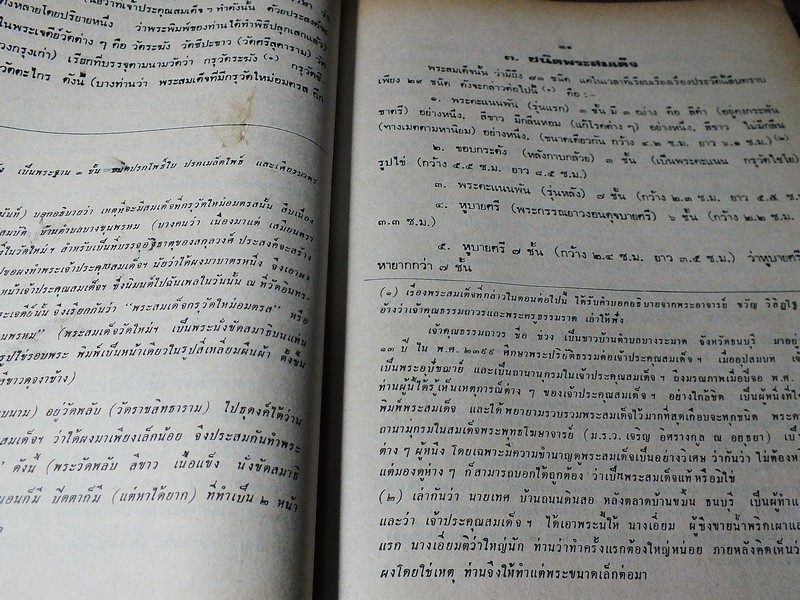 ั้งหลายโดยปริยายหนึ่ง ว่าพระพิมพ์ของท่านได้ทำพิธีปลุกเสกแล้ว
ในพระเจดีย์วัดต่าง ๆ คือ วัดระฆัง วัดชีปะขาว (วัดศรีสุดาราม) วัด
วงกรุงเก่า) เรียกที่บรรจุตามนามวัดว่า กรุวัดระฆัง (๑) กรุวัดชี
วัดตะไกร ดังนี้ (บางท่านว่า พระสมเด็จที่มีกรุวัดใหม่อมตรส อีก
เป็นพระฐาน ๓ ชั้น ชนิดปรกโพธิ์ใบ ปรกเมล็ดโพธิ์ และเศียรบาตร
นันท์) บอกอธิบายว่า เหตุที่จะมีสมเด็จที่กรุวัดใหม่อมตรสนั้น สืบเนื่อง
สมบัติ บ้านตำบลบางขุนพรหม (บางคนว่า เนื่องมาแต่ เสมียนตรา
รีในวัดใหม่ฯ สำหรับเป็นที่บรรจุอัฐิธาตุของสกุลวงศ์ ประสงค์จะสร้าง
ปขอผงทำพระเจ้าประคุณสมเด็จฯ นัยว่าได้ผงมาบาตรหนึ่ง จึงเอาผง
หม้เจ้าประคุณสมเด็จฯ ซึ่งนิมนต์ไปฉันเพลในวันนั้น ณ ที่วัดอินทร-
ระเจดีย์นั้น จึงเรียกกันว่า “พระสมเด็จกรุวัดใหม่อมตรส” หรือ
นพรหม” (พระสมเด็จวัดใหม่ฯ เป็นพระนั่งขัดสมาธิบนแท่น
รูปไข่รอบพระ พิมพ์เป็นหน้าเดียวในรูปสี่เหลี่ยมผืนผ้า ตั้งขึ้น
สีขาวดุจงาช้าง)
นาม) อยู่วัดพลับ (วัดราชสิทธาราม) ไปธุดงค์ได้ว่าน
สมเด็จฯ ว่าได้ผงมาเพียงเล็กน้อย จึงประสมกันทำพระ
” ดังนี้ (พระวัดพลับ สีขาว เนื้อแข็ง นั่งขัดสมาธิ
นอนก็มี ปิดตาก็มี (แต่หาได้ยาก) ที่ทำเป็น ๒ หน้า
๓. ชนิดพระสมเด็จ
พระสมเด็จนั้น ว่ามีถึง ๗๓ ชนิด แต่ในเวลาที่เรียบเรียงเรื่องประวัตินี้สืบทราบ
เพียง ๒๙ ชนิด ดังจะกล่าวต่อไปนี้ (๑) คือ :-
๑. พระคะแนนพัน (รุ่นแรก) ๓ ชั้น มี ๓ อย่าง คือ สีดำ (อยู่คงกระพัน
ชาตรี) อย่างหนึ่ง. สีขาว มีกลิ่นหอม (แก้โรคต่าง ๆ) อย่างหนึ่ง. สีขาว ไม่มีกลิ่น
(ทางเมตตามหานิยม) อย่างหนึ่ง. (ขนาดเดียวกัน กว้าง ๔.๒ ซ.ม. ยาว ๖.๑ ซ.ม.) (๒)
๒. ขอบกระด้ง (หลังกาบกล้วย) ๓ ชั้น (เป็นพระคะแนน กรุวัดไชโย)
รูปไข่ (กว้าง ๕.๕ ซ.ม. ยาว ๘.๕ ซ.ม.)
๓. พระคะแนนพัน (รุ่นหลัง) ๗ ชั้น (กว้าง ๒.๓ ซ.ม. ยาว ๕.๕ ซ.ม.
๔. หูบายศรี (พระกรรณยาวงอนดุจบายศรี) ๖ ชั้น (กว้าง ๒.๒ ซ.ม.
๓.๓ ซ.ม.)
๕. หูบายศรี ๗ ชั้น (กว้าง ๒.๔ ซ.ม. ยาว ๓.๕ ซ.ม.) ว่าหูบายศรี
หายากกว่า ๗ ชั้น
(๑) เรื่องพระสมเด็จที่กล่าวในตอนต่อไปนี้ ได้รับคำบอกอธิบายจากพระอาจารย์ ขวัญ วิสิฏโฐ
อ้างว่าเจ้าคุณธรรมถาวรและพระครูธรรมราต เล่าให้ฟัง
เจ้าคุณธรรมถาวร ชื่อ ช่วง เป็นชาวบ้านตำบลบางระมาด จังหวัดธนบุรี มาอยู่
๑๓ ปี ใน พ.ศ. ๒๓๙๙ ศึกษาพระปริยัติธรรมต่อเจ้าประคุณสมเด็จฯ เมื่ออุปสมบท เจ้
เป็นพระอุปัชฌาย์ และเป็นฐานานุกรมในเจ้าประคุณสมเด็จฯ ถึงมรณภาพเมื่อปีจอ พ.ศ.
ท่านผู้นี้ได้รู้เห็นเหตุการณ์ต่าง ๆ ของเจ้าประคุณสมเด็จฯ อย่างใกล้ชิด เป็นผู้หนึ่งที่ใ
พิมพ์พระสมเด็จ และได้พยายามรวบรวมพระสมเด็จไว้มากที่สุดเกือบจะทุกชนิด พระค
ถานานุกรมในสมเด็จพระพุทธโฆษาจารย์ (ม.ร.ว. เจริญ อิศรางกูล ณ อยุธยา) เป็
ต่าง ๆ ผู้หนึ่ง โดยเฉพาะมีความชำนาญดูพระสมเด็จเป็นอย่างวิเศษ ว่ากันว่า ไม่ต้องหยิ
แต่มองดูห่าง ๆ ก็สามารถบอกได้ถูกต้อง ว่าเป็นพระสมเด็จแท้หรือมิใช่
(๒) เล่ากันว่า นายเทศ บ้านถนนดินสอ หลังตลาดบ้านขมิ้น ธนบุรี เป็นผู้ทำแ
และว่า เจ้าประคุณสมเด็จฯ ได้เอาพระนี้ให้ นางเอี่ยม ผู้ซึ่งขายน้ำพริกเผาแล
แรก นางเอี่ยมติว่าใหญ่นัก ท่านว่าทำครั้งแรกต้องใหญ่หน่อย ภายหลังคิดเห็นว่
ผงโดยใช่เหตุ ท่านจึงให้ทำแต่พระขนาดเล็กต่อมา